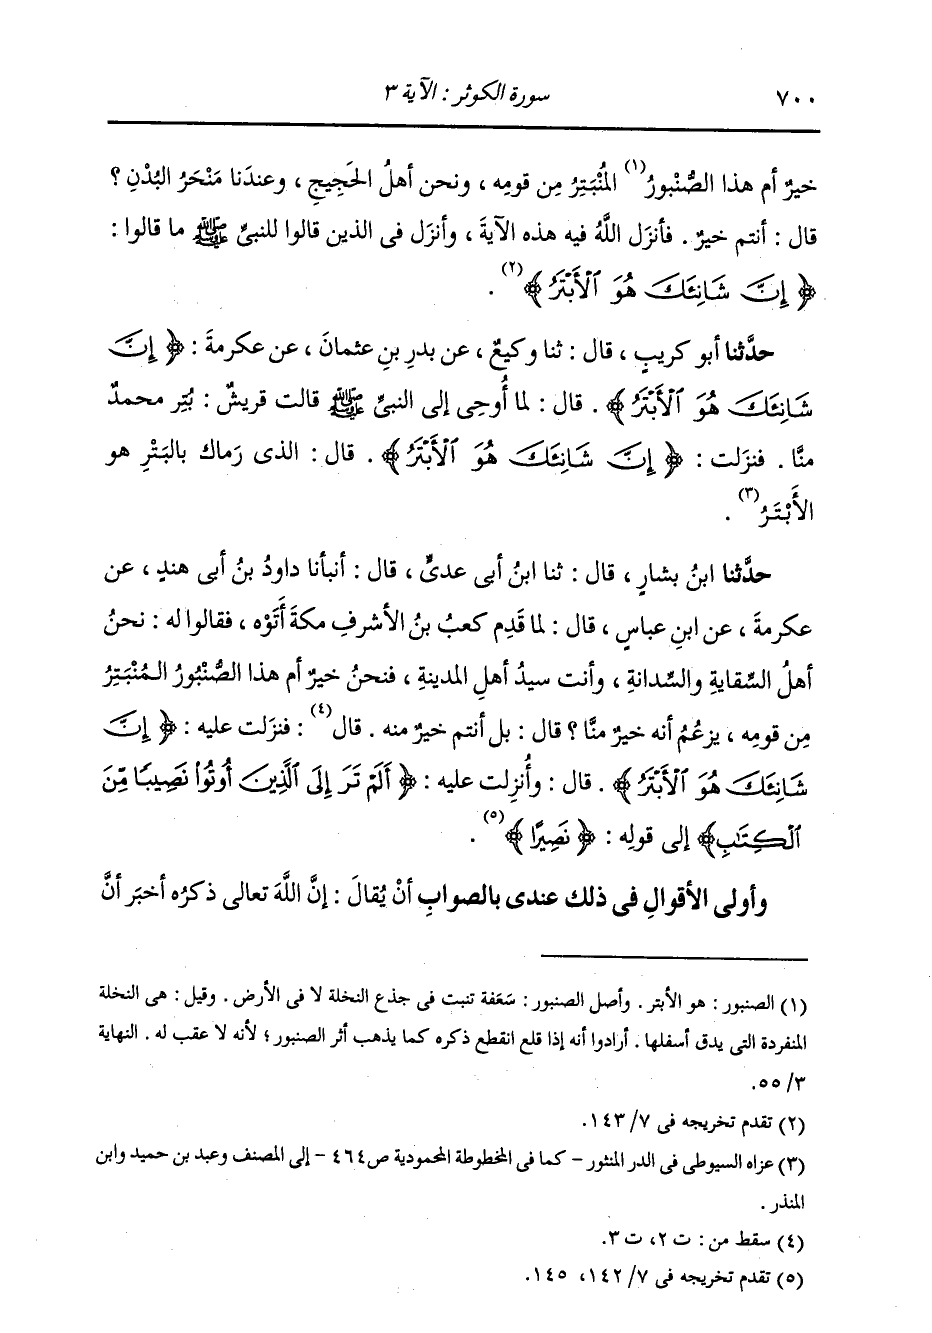 ٧٠٠ سورة الكوثر : الآية ٣
خيرٌ أم هذا الصُّنْبورُ(١) المُنْبَتِرُ مِن قومِه ، ونحن أهلُ الحَجِيجِ ، وعندَنا مَنْحَرُ البُدْنِ ؟
قال : أنتم خيرٌ . فأنزَل اللَّهُ فيه هذه الآيةَ ، وأنزَل فى الذين قالوا للنبىِّ ﷺ ما قالوا :
﴿ إِنَّ شَانِئَكَ هُوَ ٱلْأَبْتَرُ ﴾(٢) .
حدَّثنا أبو كريبٍ ، قال : ثنا وكيعٌ ، عن بدرِ بنِ عثمانَ ، عن عكرمةَ : ﴿ إِنَّ
شَانِئَكَ هُوَ ٱلْأَبْتَرُ ﴾ . قال : لما أُوحِى إلى النبىِّ ﷺ قالت قريشٌ : بُتِر محمدٌ
منَّا . فنزَلت : ﴿ إِنَّ شَانِئَكَ هُوَ ٱلْأَبْتَرُ ﴾ . قال : الذى رَماك بالبَتْرِ هو
الأَبْتَرُ(٣) .
حدَّثنا ابنُ بشارٍ ، قال : ثنا ابنُ أبى عدىٍّ ، قال : أنبأنا داودُ بنُ أبى هندٍ ، عن
عكرمةَ ، عن ابنِ عباسٍ ، قال : لما قَدِم كعبُ بنُ الأشرفِ مكةَ أَتَوْه ، فقالوا له : نحنُ
أهلُ السِّقايةِ والسِّدانةِ ، وأنت سيدُ أهلِ المدينةِ ، فنحنُ خيرٌ أم هذا الصُّنْبُورُ المُنْبَتِرُ
مِن قومِه ، يزعُمُ أنه خيرٌ منَّا ؟ قال : بل أنتم خيرٌ منه . قال(٤) : فنزَلت عليه : ﴿ إِنَّ
شَانِئَكَ هُوَ ٱلْأَبْتَرُ ﴾ . قال : وأُنزِلت عليه : ﴿ أَلَمْ تَرَ إِلَى ٱلَّذِينَ أُوتُوا۟ نَصِيبًا مِّنَ
ٱلْكِتَٰبِ﴾ إلى قولِه : ﴿ نَصِيرًا ﴾(٥) .
وأولى الأقوالِ فى ذلك عندى بالصوابِ أنْ يُقالَ : إنَّ اللَّهَ تعالى ذكرُه أخبَر أنَّ
(١) الصنبور : هو الأبتر . وأصل الصنبور : سَعَفة تنبت فى جذع النخلة لا فى الأرض . وقيل : هى النخلة
المنفردة التى يدق أسفلها . أرادوا أنه إذا قلع انقطع ذكره كما يذهب أثر الصنبور ؛ لأنه لا عقب له . النهاية
٣/ ٥٥.
(٢) تقدم تخريجه فى ٧/ ١٤٣.
(٣) عزاه السيوطى فى الدر المنثور - كما فى المخطوطة المحمودية ص٤٦٤ - إلى المصنف وعبد بن حميد وابن
المنذر .
(٤) سقط من : ت ٢، ت ٣.
(٥) تقدم تخريجه فى ٧/ ١٤٢، ١٤٥.